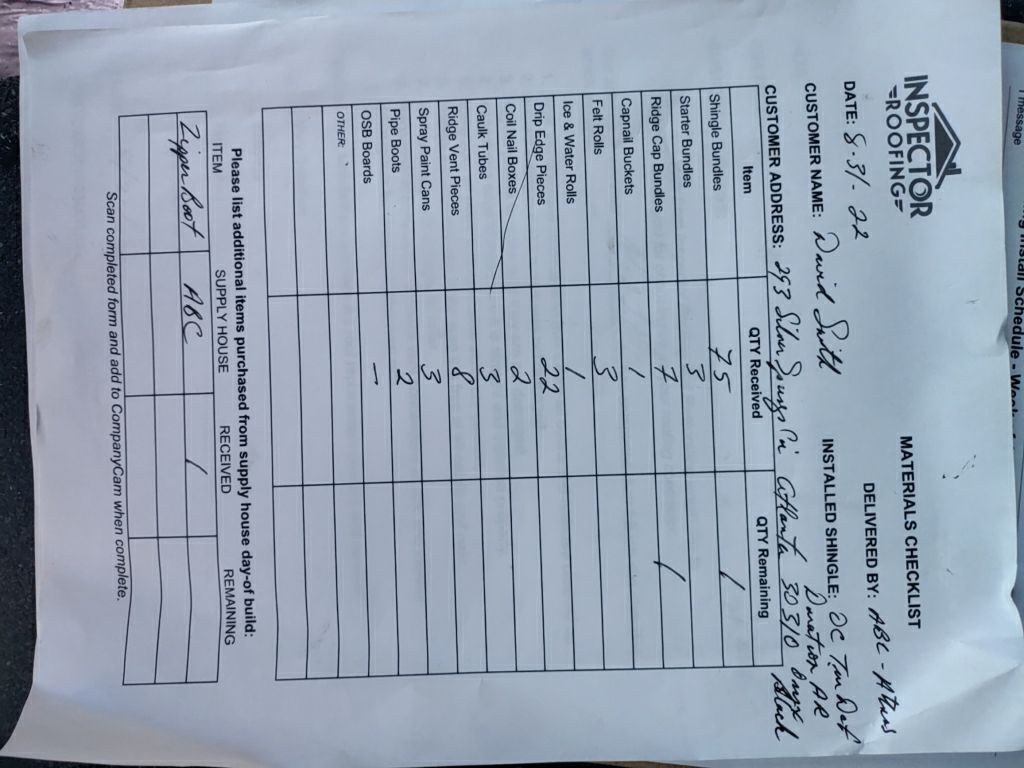 INSPECTOR
ROOFING
MATERIALS CHECKLIST
DELIVERED BY: ABC -
DATE: 8-31-22
CUSTOMER NAME: David Smith
INSTALLED SHINGLE: OC Tru Def
Duration AR
Onyx
Black
CUSTOMER ADDRESS: 293 Springs Atlanta 30310
Item QTY Received QTY Remaining
Shingle Bundles 75 1
Starter Bundles 3
Ridge Cap Bundles 7 1
Capnail Buckets 1
Felt Rolls 3
Ice & Water Rolls 1
Drip Edge Pieces 22
Coil Nail Boxes 2
Caulk Tubes 3
Ridge Vent Pieces 8
Spray Paint Cans 3
Pipe Boots 2
OSB Boards -
OTHER:
Please list additional items purchased from supply house day-of build:
ITEM SUPPLY HOUSE RECEIVED REMAINING
Zipper Boot ABC 1
Scan completed form and add to CompanyCam when complete.
message
Schedule -